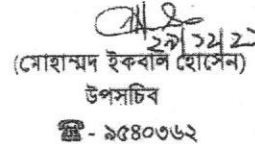 ২৯/১২/২২
(মোহাম্মদ ইকবাল হোসেন)
উপসচিব
☎ - ৯৫৪০৩৬২